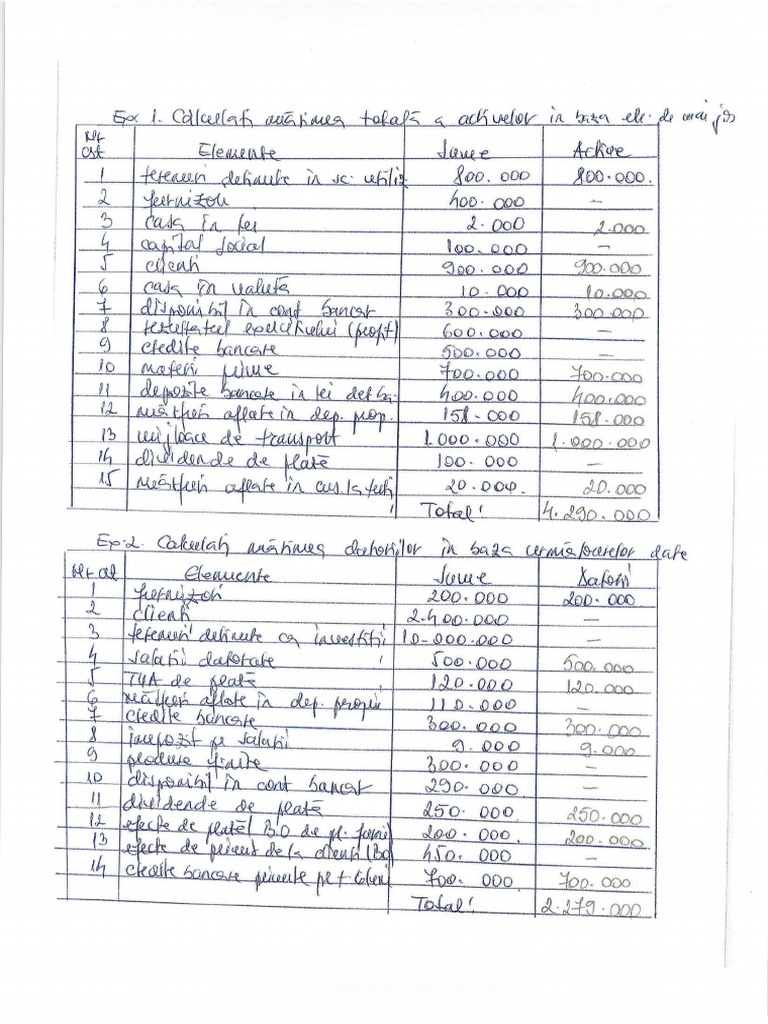 Ex 1. Calculati mărimea totală a activelor în baza ele. de mai jos
Nr crt Elemente Sume Active
1 terenuri detinute în sc. utiliz 800.000 800.000.
2 furnizori 400.000 –
3 casa în lei 2.000 2.000
4 capital social 100.000 –
5 clienti 900.000 900.000
6 casa în valută 10.000 10.000
7 disponibil în cont bancar 300.000 300.000
8 exercitiului (profit) 600.000 –
9 credite bancare 500.000 –
10 materii prime 700.000 700.000
11 depozite bancare în lei 400.000 400.000
12 mărfuri aflate în dep. prop. 158.000 158.000
13 mijloace de transport 1.000.000 1.000.000
14 dividende de plată 100.000 –
15 mărfuri aflate în la 20.000 20.000
Total: 4.290.000
Ex.2. Calculati mărimea datoriilor în baza următoarelor date
Nr crt Elemente Sume Datorii
1 furnizori 200.000 200.000
2 clienti 2.400.000 –
3 terenuri detinute ca investitii 10.000.000 –
4 salarii datorate 500.000 500.000
5 TVA de plată 120.000 120.000
6 mărfuri aflate în dep. propriu 110.000 –
7 credite bancare 300.000 300.000
8 impozit pe salarii 9.000 9.000
9 produse finite 300.000 –
10 disponibil în cont bancar 290.000 –
11 dividende de plată 250.000 250.000
12 efecte de plată BO de pl. 200.000 200.000
13 efecte de primit de la clienti (BO) 450.000 –
14 credite bancare primite pe t. 700.000 700.000
Total: 2.279.000